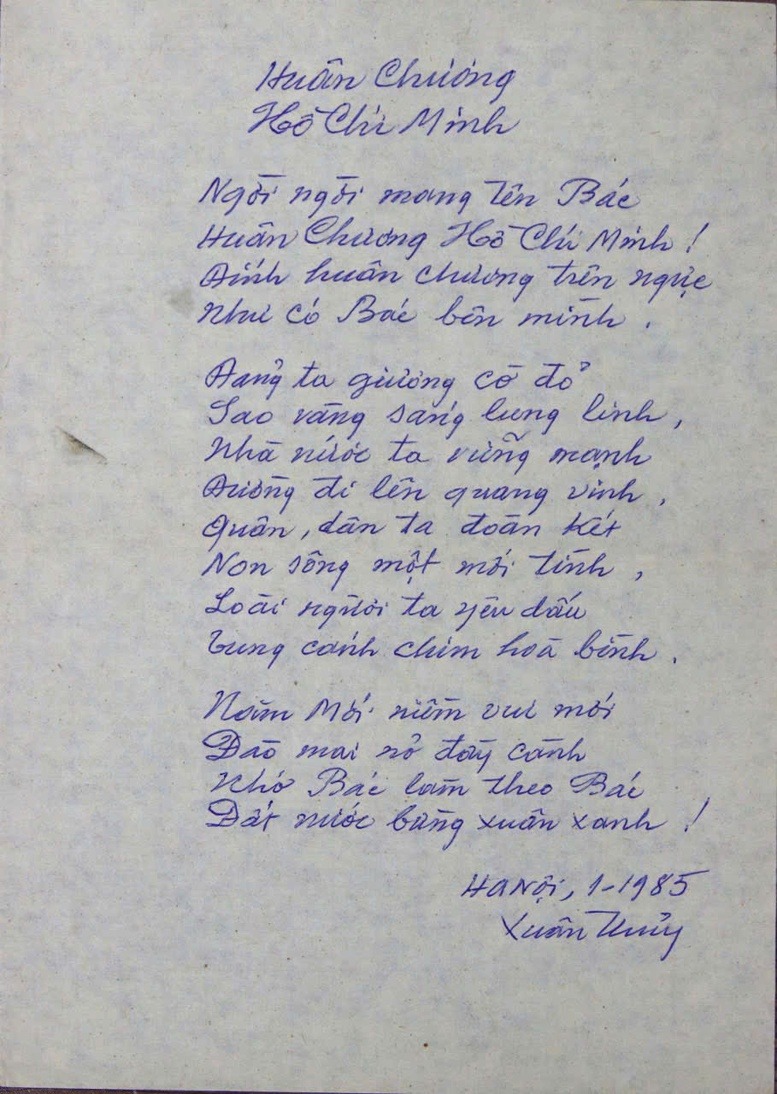 Huân Chương
Hồ Chí Minh
Ngời ngời mang tên Bác
Huân Chương Hồ Chí Minh !
Đính huân chương trên ngực
Như có Bác bên mình .
Đảng ta giương cờ đỏ
Sao vàng sáng lung linh ,
Nhà nước ta vững mạnh
Đường đi lên quang vinh ,
Quân , dân ta đoàn kết
Non sông một mối tình ,
Loài người ta yêu dấu
Tung cánh chim hoà bình .
Năm Mới niềm vui mới
Đào mai nở đầy cành
Nhớ Bác làm theo Bác
Đất nước bừng xuân xanh !
Hà Nội, 1-1985
Xuân Thuỷ